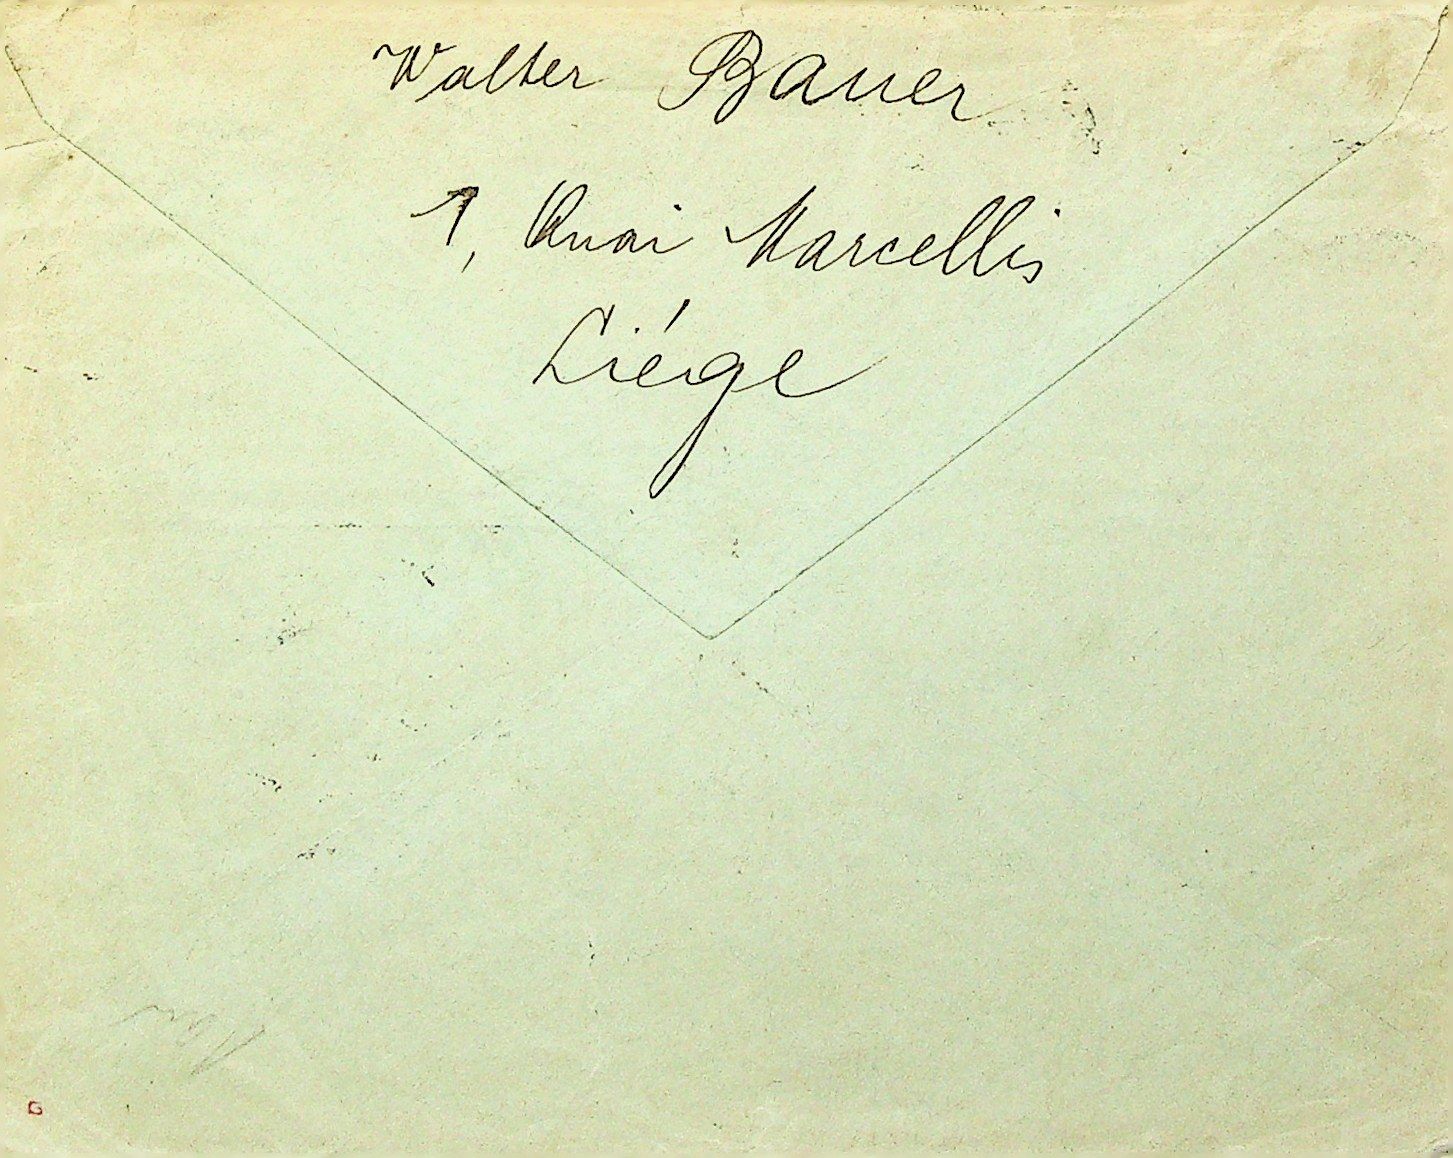 Walter Bauer
1, Quai Marcellis
Liége